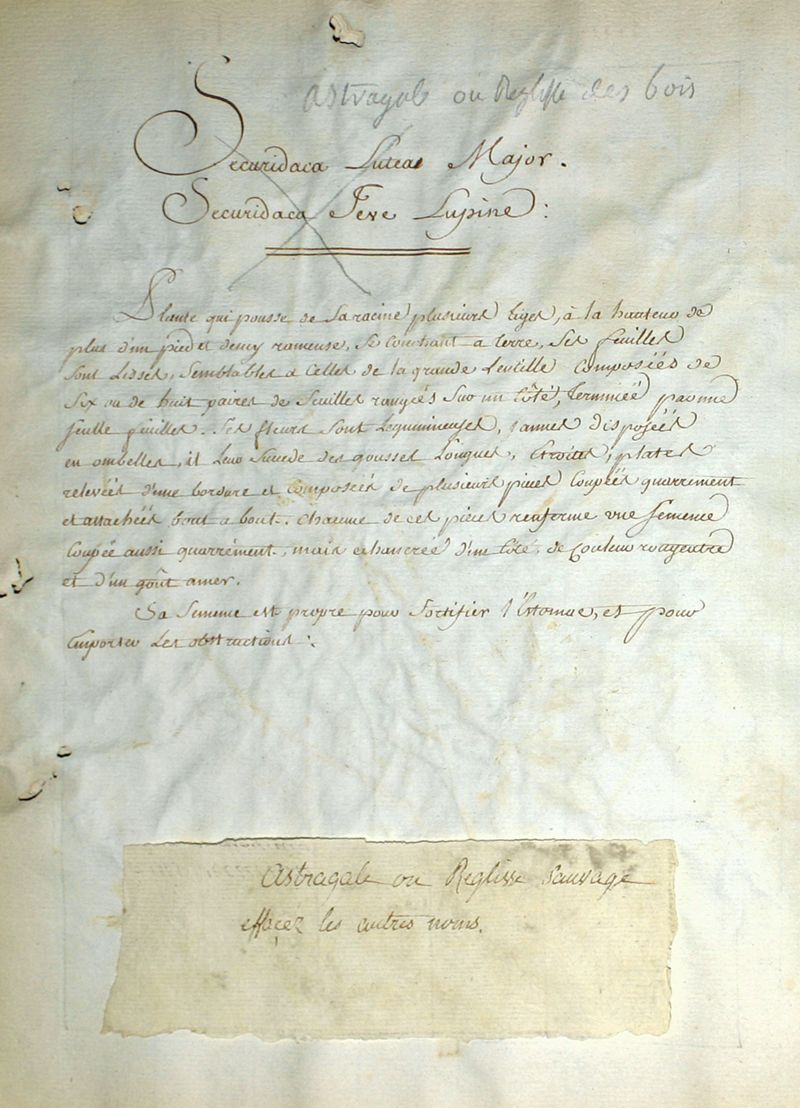 Astragale ou Reglisse des bois
Securidaca Lutea Major.
Securidaca Feve Lupine :
Plante qui pousse de Sa racine plusieurs tiges, à la hauteur de
plus d'un pied et demy rameuse, Se Courbant a terre, Ses feuilles
Sont Lisses, Semblables à Celles de la grande Lentille Composées de
Six ou de huit paires de feuilles rangées Sur un Côté, Terminée par une
seulle feuilles. Ses fleurs Sont Legumineuses, jaunes disposées
en ombelles, il leur Succede des gousses Longues, Etroites, plates
relevées d'une bordure et Composées de plusieurs pieces Coupées quarrement
et attachées bout a bout. Chacune de ces pieces renferme une Semence
Coupée aussi quarrément, mais echancrée d'un Côté, de Couleur rougeatre
et d'un goût amer.
Sa Semence est propre pour Fortifier l'Estomac, et pour
Emporter Les obstructions :.
Astragale ou Reglisse Sauvage
effaçez les autres noms.